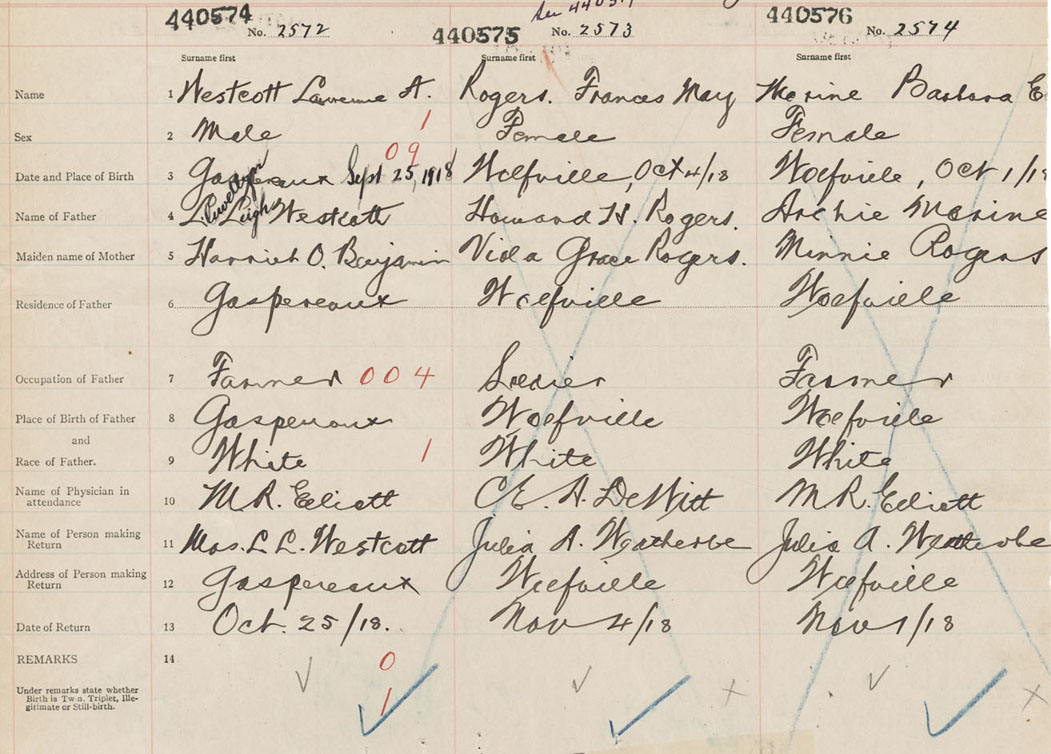 440574 No. 2572 440575 No. 2573 See 440576 No. 2574
Surname first Surname first Surname first
Name 1 Westcott Lawrence A. Rogers. Frances May Marine Barbara E
Sex 2 Male 1 Female Female
09
Date and Place of Birth 3 Gaspereaux Sept 25, 1918 Wolfville, Oct 4/18 Wolfville, Oct 1/1
Name of Father 4 L. Llewellyn Leigh Westcott Howard H. Rogers. Archie Marine
Maiden name of Mother 5 Harriet O. Benjamin Viola Grace Rogers. Minnie Rogers
Residence of Father 6 Gaspereaux Wolfville Wolfville
Occupation of Father 7 Farmer 004 Soldier Farmer
Place of Birth of Father 8 Gaspereaux Wolfville Wolfville
and
Race of Father. 9 White 1 White White
Name of Physician in attendance 10 M.R. Elliott C.E. A. DeWitt M.R. Elliott
Name of Person making Return 11 Mrs. L. L. Westcott Julia A. Weatherbe Julia A. Weatherbe
Address of Person making Return 12 Gaspereaux Wolfville Wolfville
Date of Return 13 Oct. 25/18. Nov 4/18 Nov 1/18
REMARKS 14
0
Under remarks state whether Birth is Twin, Triplet, Illegitimate or Still-birth. 1